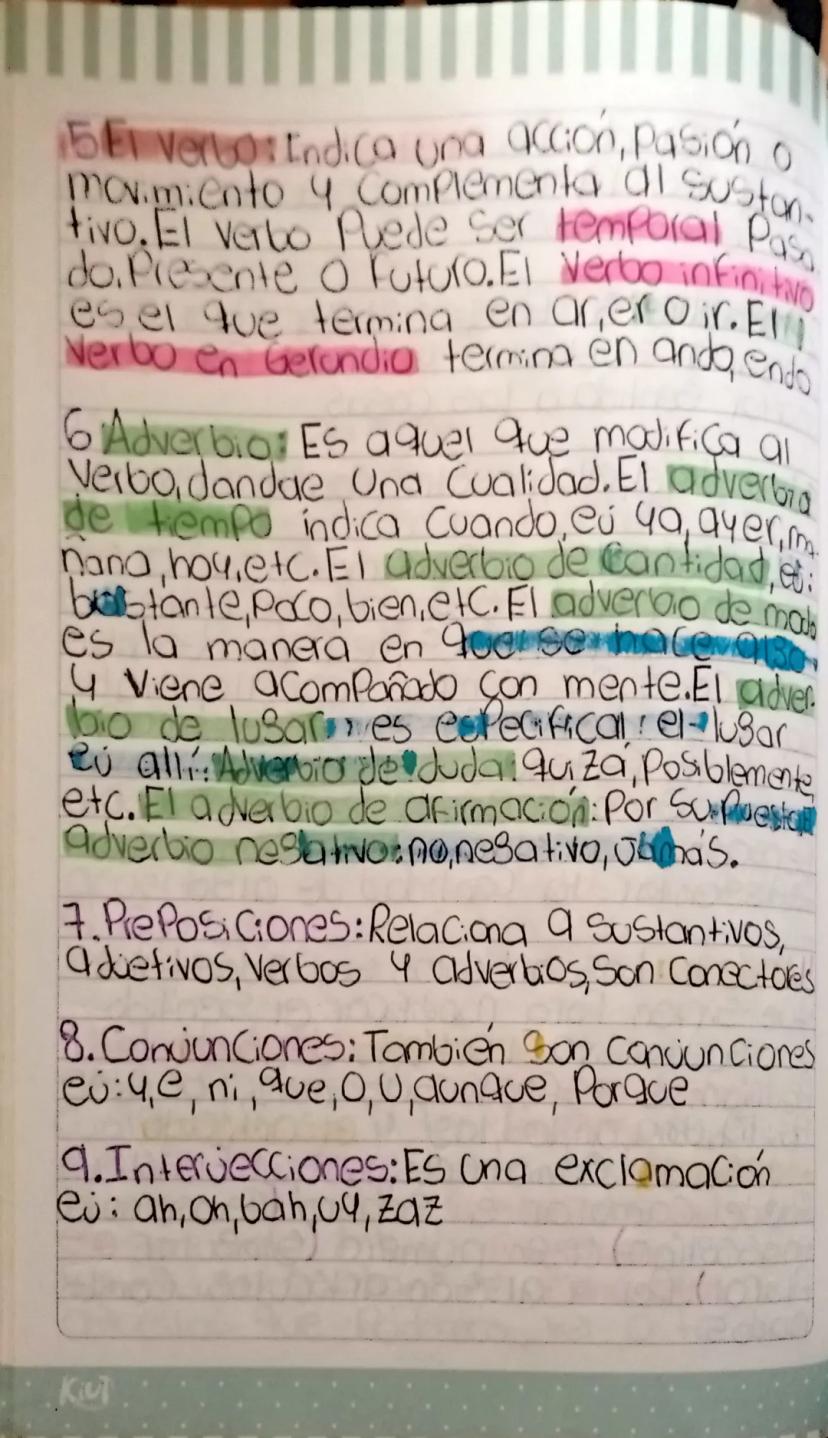 5 El verbo: Indica una acción, pasión o
movimiento y complementa al sustan-
tivo. El verbo puede ser temporal pasa
do, Presente o Futuro. El Verbo infinitivo
es el que termina en ar, er o ir. El
Verbo en Gerundio termina en ando, endo
6 Adverbio: Es aquel que modifica al
Verbo, dandae una cualidad. El adverbio
de tiempo indica cuando, ej ya, ayer, ma
ñana, hoy, etc. El adverbio de cantidad, ej:
bastante, poco, bien, etc. El adverbio de modo
es la manera en que se hace algo,
y viene acompañado con mente. El adver-
bio de lugar: es especifical: el lugar
ej allí. Adverbio de duda: quizá, posiblemente,
etc. El adverbio de afirmación: Por supuesto
adverbio negativo: no, negativo, jamás.
7. Preposiciones: Relaciona a sustantivos,
adjetivos, verbos y adverbios, son conectores
8. Conjunciones: También son conjunciones
ej: y, e, ni, que, o, u, aunque, porque
9. Interjecciones: Es una exclamación
ej: ah, oh, bah, uy, zaz
KiUT